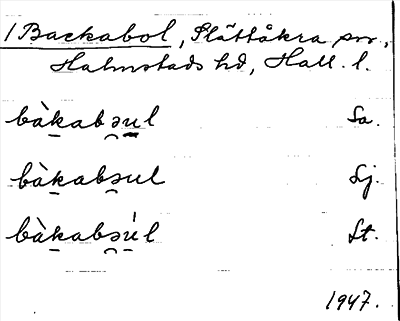 1 Backabol, Slättåkra sn.,
Halmstads hd, Hall. l.
bàkabəul Sa.
bàkabəul Lj.
bàkabəúl St.
1947.